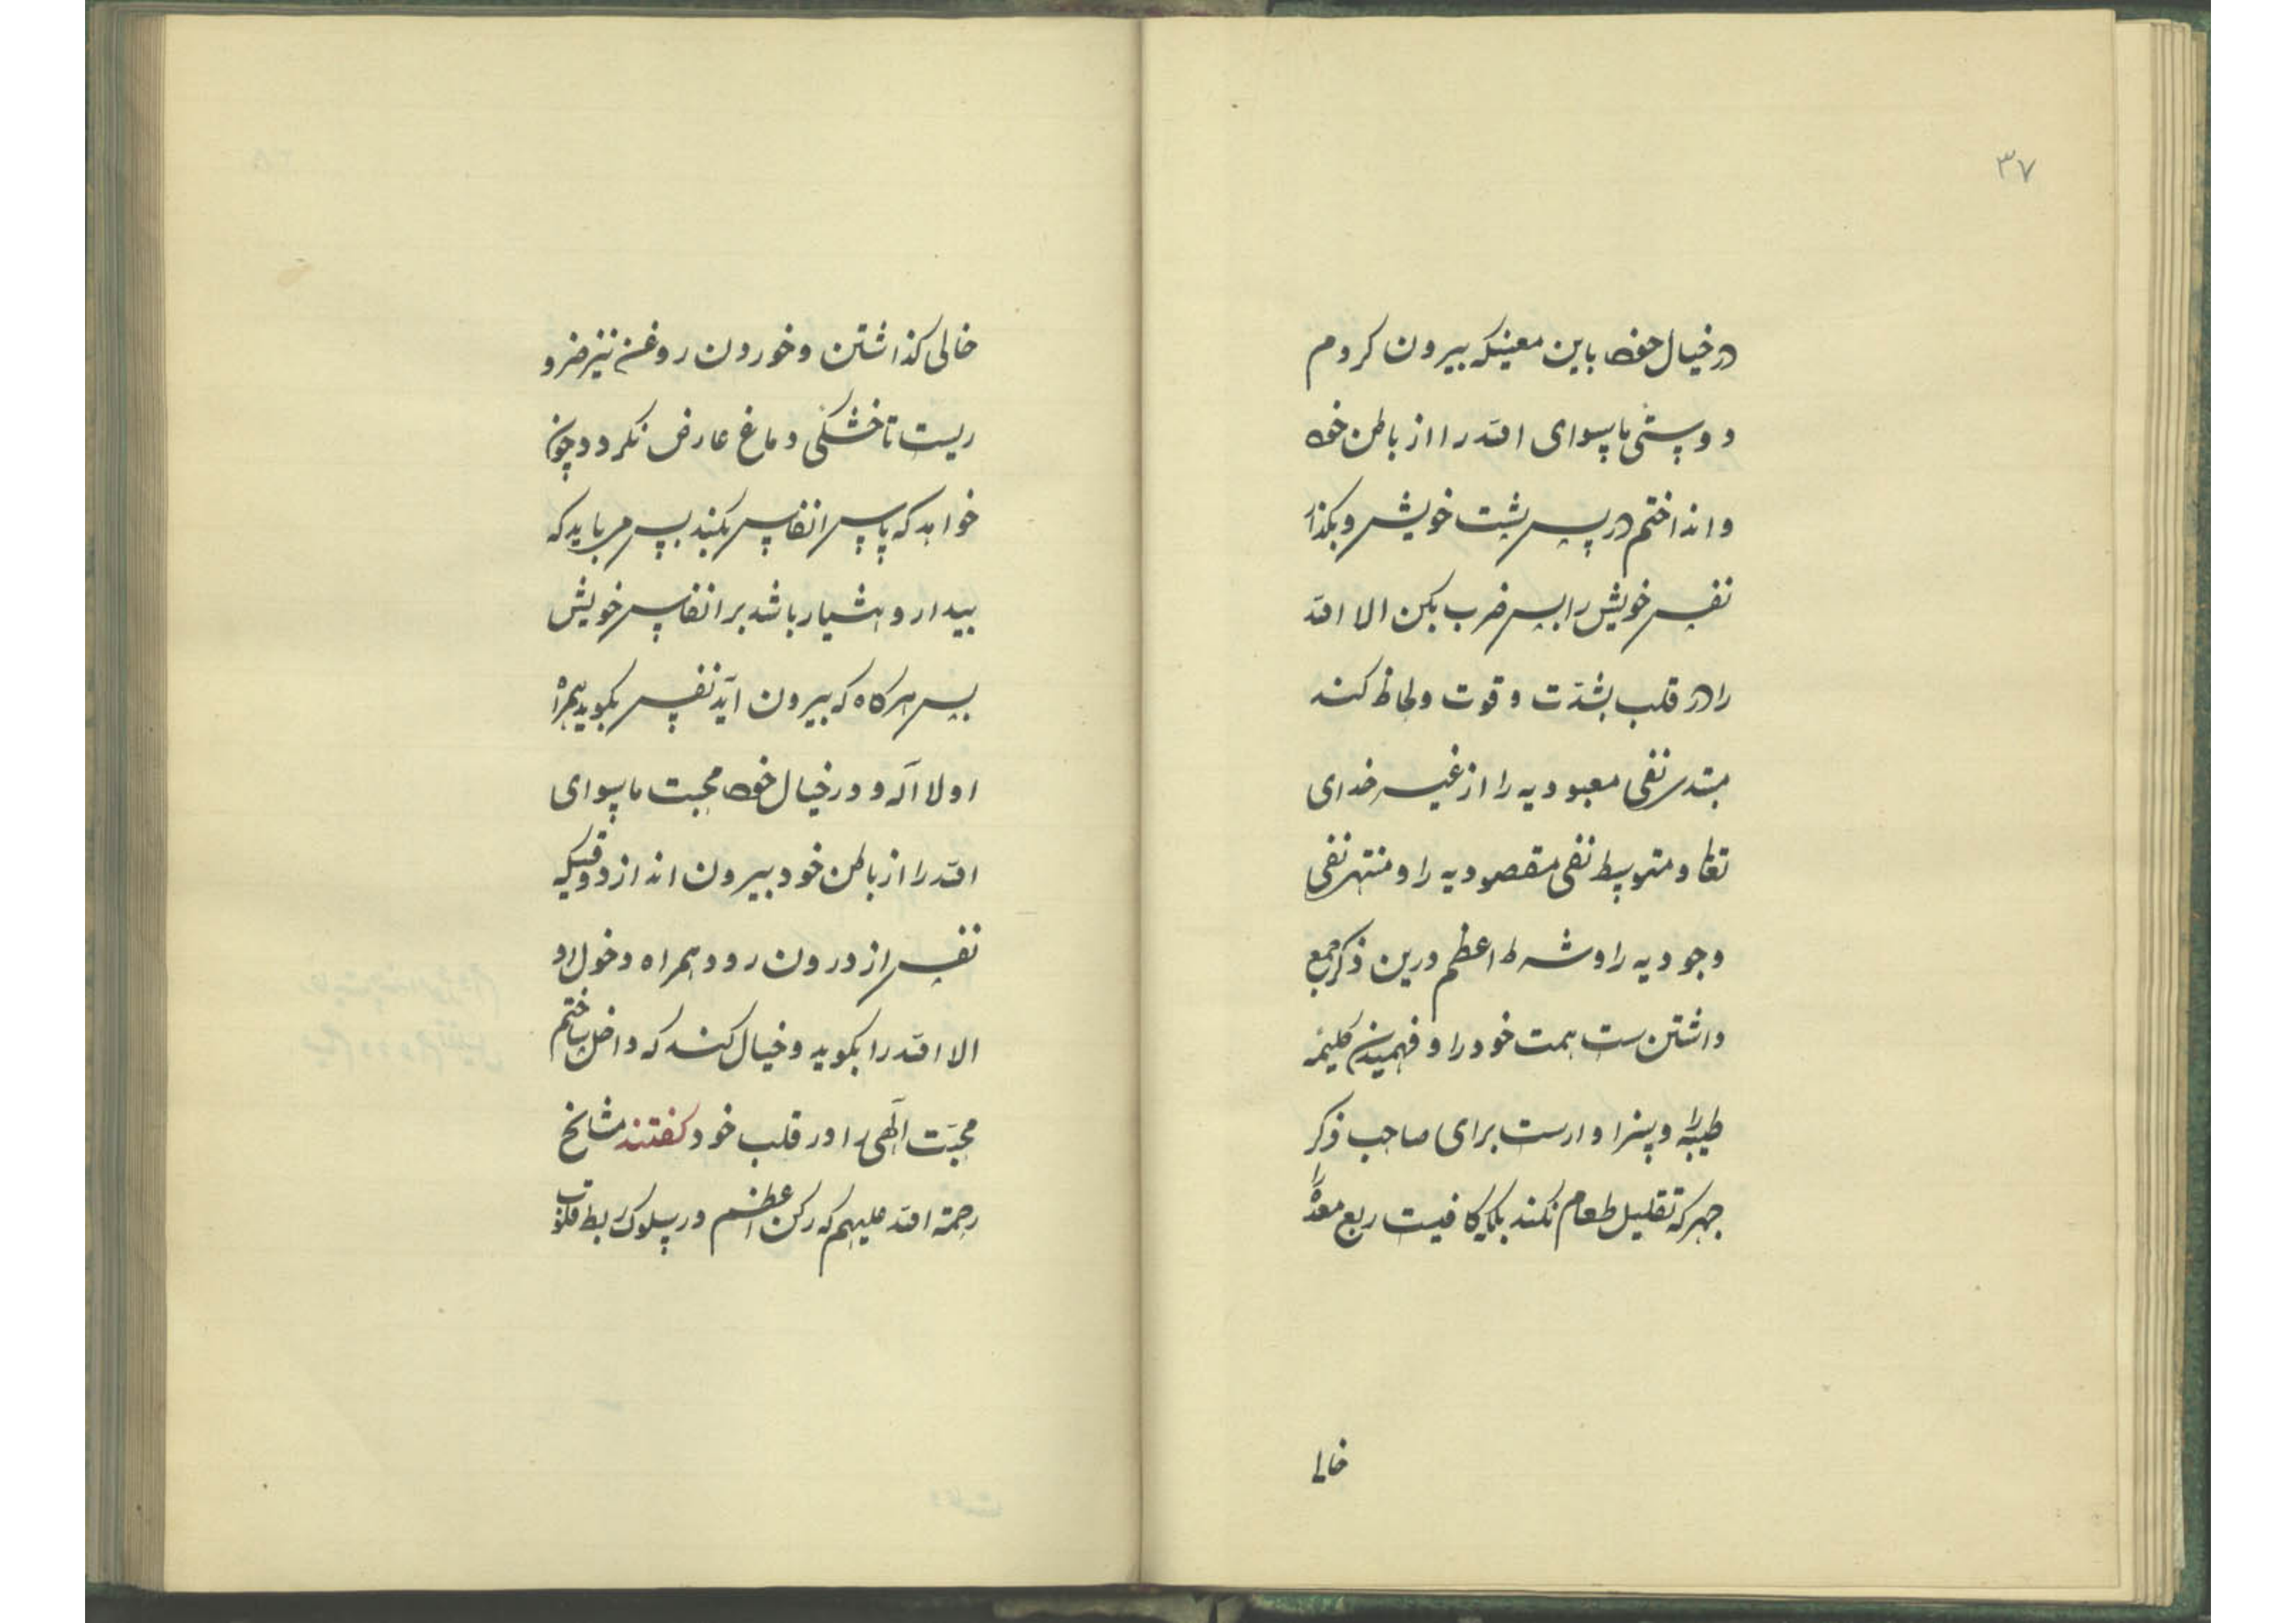 ۳۷
در خیال خود باین معینکه بیرون کردم
و دوستی ماسوای الله را از باطن خود
و انداختم در پس پشت خویش و بکذار
نفس خویش را پس ضرب بکن الا الله
را در قلب بشدّت و قوت و لحاظ کند
مبتدی نفی معبودیه را از غیر خدای
تعالی و متوسط نفی مقصودیه را و منتهی نفی
وجودیه را و شرط اعظم درین ذکر جمع
داشتن ست همت خود را و فهمیدن کلیمه
طیبه را و سزاوارست برای صاحب ذکر
جهر که تقلیل طعام نکند بلکه کافیست ربع معده را
خالی
خالی کذاشتن و خوردن روغن نیز ضرو
ریست تا خشکی دماغ عارض نکردد و چون
خواهد که پاس انفاس بکند پس می باید که
بیدار و هشیار باشد بر انفاس خویش
پس هرکاه که بیرون آید نفس بکوید همراه
او لا آله و در خیال خود محبت ماسوای
الله را از باطن خود بیرون اندازد وقتیکه
نفس از درون رود همراه دخول او
الا الله را بکوید و خیال کند که داخل ساختم
محبّت آلهی را در قلب خود کفتند مشایخ
رحمة الله علیهم که رکن اعظم در سلوک ربط قلوب